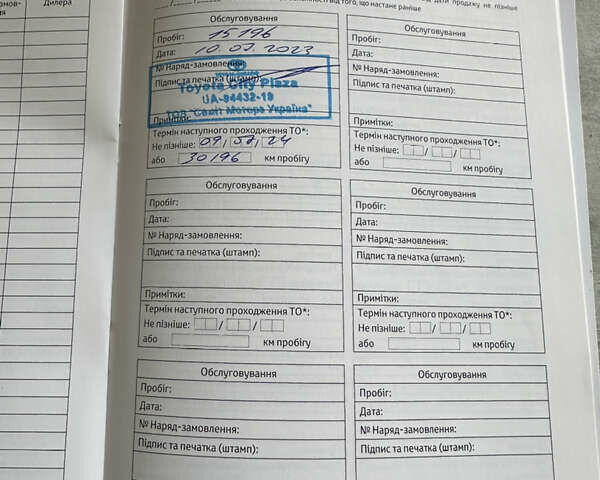 мов-
ня
Дилера
від того, що настане раніше
дати продажу не пізніше
Обслуговування
Пробіг: 15196
Дата: 10.07.2023
№ Наряд-замовлення:
Підпис та печатка (штамп):
Toyota City Plaza
UA-94432-19
Примітки:
Термін наступного проходження ТО*:
Не пізніше: 09/07/24
або 30196 км пробігу
Обслуговування
Пробіг:
Дата:
№ Наряд-замовлення:
Підпис та печатка (штамп):
Примітки:
Термін наступного проходження ТО*:
Не пізніше: / /
або км пробігу
Обслуговування
Пробіг:
Дата:
№ Наряд-замовлення:
Підпис та печатка (штамп):
Примітки:
Термін наступного проходження ТО*:
Не пізніше: / /
або км пробігу
Обслуговування
Пробіг:
Дата:
№ Наряд-замовлення:
Підпис та печатка (штамп):
Примітки:
Термін наступного проходження ТО*:
Не пізніше: / /
або км пробігу
Обслуговування
Пробіг:
Дата:
№ Наряд-замовлення:
Підпис та печатка (штамп):
Обслуговування
Пробіг:
Дата:
№ Наряд-замовлення:
Підпис та печатка (штамп):